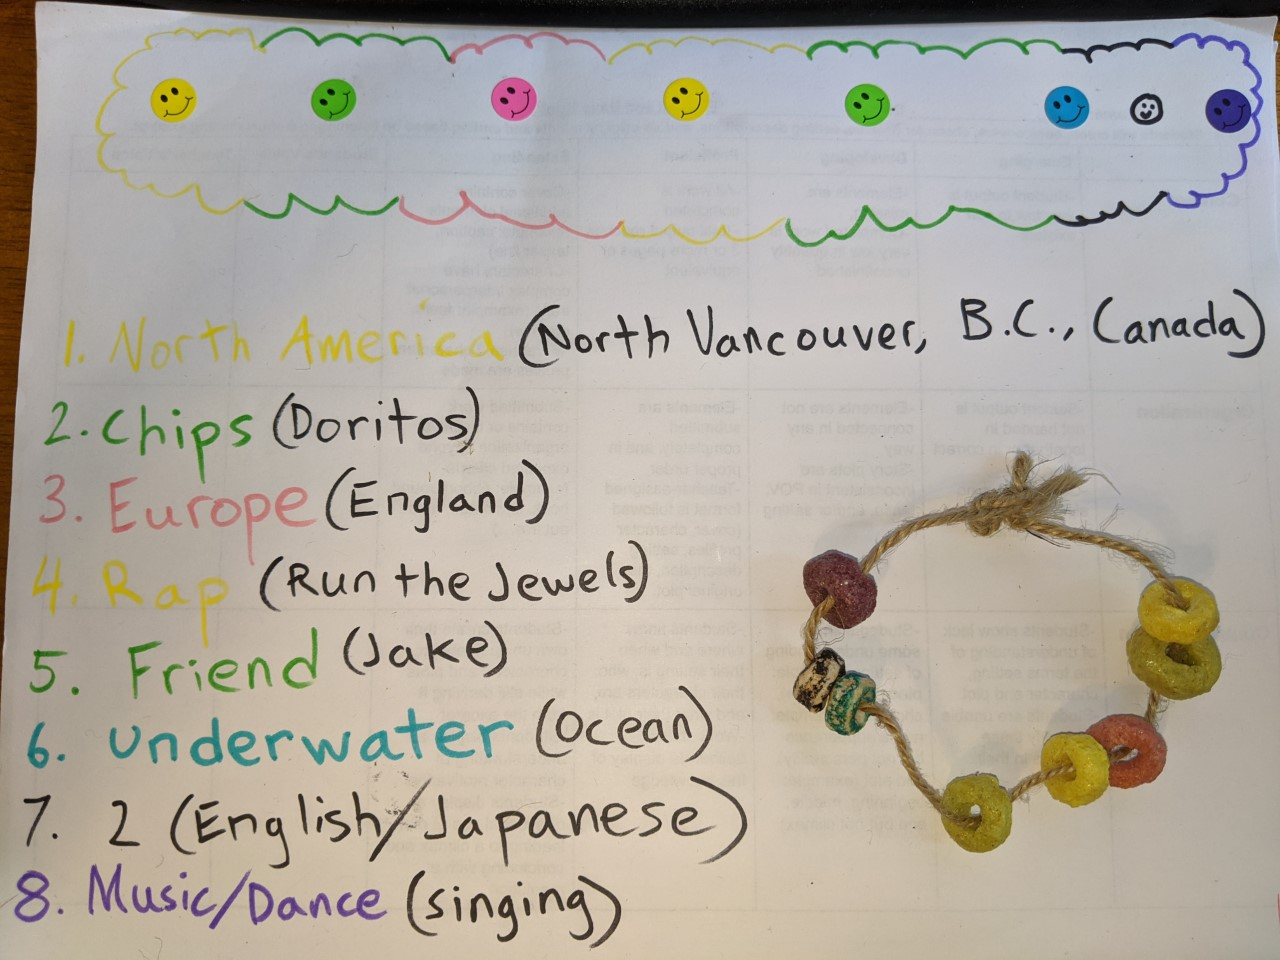 1. North America (North Vancouver, B.C., Canada)
2. Chips (Doritos)
3. Europe (England)
4. Rap (Run the Jewels)
5. Friend (Jake)
6. Underwater (Ocean)
7. 2 (English/Japanese)
8. Music/Dance (singing)